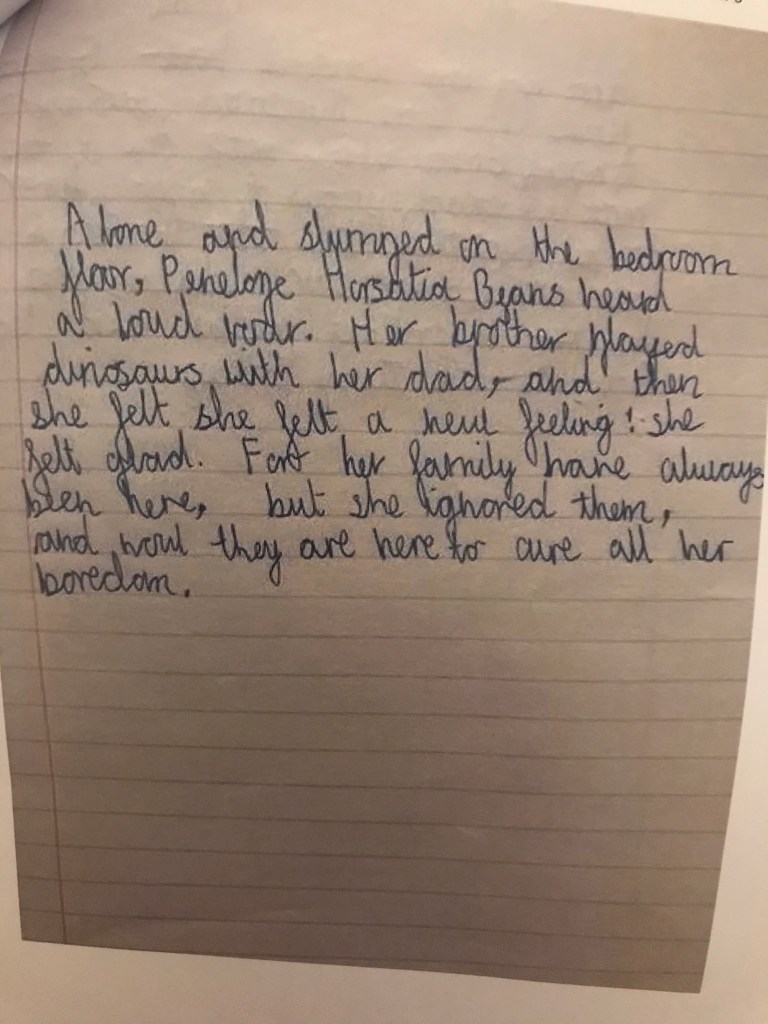 Alone and slumped on the bedroom
floor, Penelope Horsatia Beans heard
a loud roar. Her brother played
dinosaurs with her dad, and then
she felt she felt a new feeling! she
felt glad. For her family have always
been here, but she ignored them,
and now they are here to cure all her
boredom.